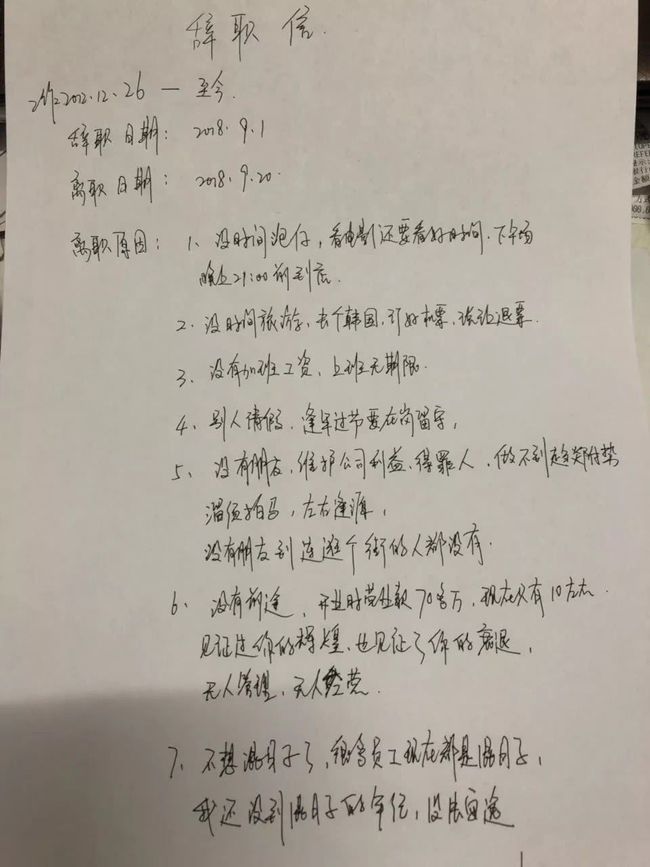 辞职信.
工作2012.12.26 — 至今.
辞职日期: 2018.9.1
离职日期: 2018.9.20.
离职原因: 1、没时间泡仔,看电影还要看好时间.下午场
晚上21:00前到店.
2、没时间旅游,去个韩国,订好机票,被迫退票.
3、没有加班工资,上班无期限.
4、别人请假,逢年过节要在岗留守,
5、没有朋友,维护公司利益,得罪人,做不到趋炎附势
溜须拍马,左右逢源,
没有朋友到连逛个街的人都没有.
6、没有前途,开业时营业款70多万,现在只有10左右.
见证过你的辉煌,也见证了你的衰退,
无人管理,无人经营.
7、不想混日子了,很多员工现在都是混日子,
我还没到混日子的年纪,没法回逾